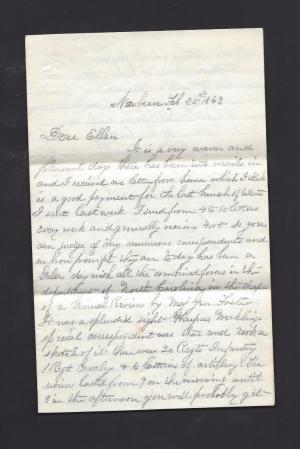 Newbern Feb 25th 1863
Dear Ellen
It is a very warm and
pleasant day there has been two mails in
and I received no letter from home which I think
is a good payment for the last bunch of letters
I sent last week I send from 4 to 10 letters
every week and generally receive not so you
can judge of my numerous correspondents and
us how prompt they are today has been a
Gala day with all the combined forces in the
department of North Carolina in the shape
of a Grand Review by Maj Gen Foster
It was a splendid sight Harpers Weekly
special correspondent was there and took a
sketch of it there were 20 Regts Infantry
1 Rgt Cavalry & 6 batterys of artilery The
review lasted from 9 in the morning until
3 in the afternoon you will probably get